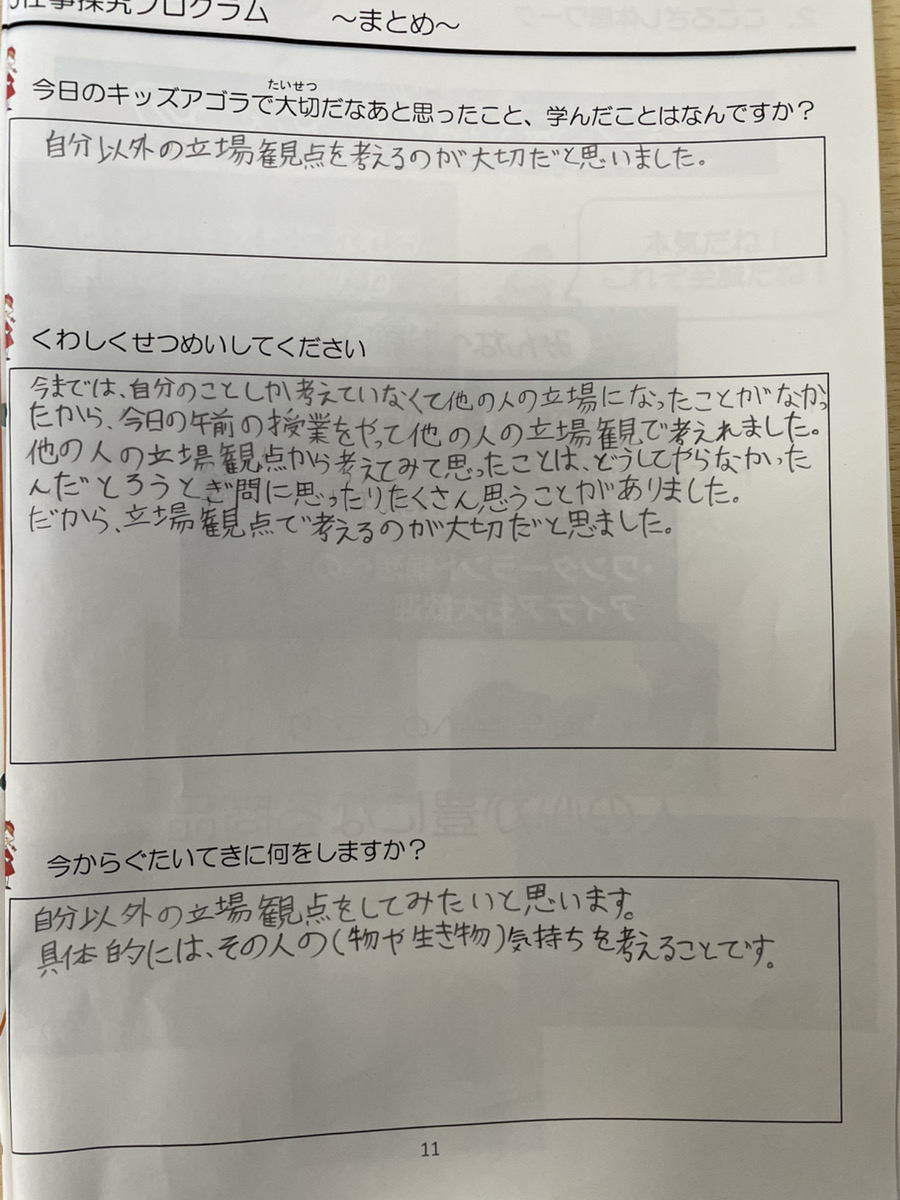 仕事探究プログラム ～まとめ～
たいせつ
今日のキッズアゴラで大切だなあと思ったこと、学んだことはなんですか？
自分以外の立場観点を考えるのが大切だと思いました。
くわしくせつめいしてください
今までは、自分のことしか考えていなくて他の人の立場になったことがなかっ
たから、今日の午前の授業をやって他の人の立場観で考えれました。
他の人の立場観点から考えてみて思ったことは、どうしてやらなかった
んだとろうとぎ問に思ったりたくさん思うことがありました。
だから、立場観点で考えるのが大切だと思ました。
今からぐたいてきに何をしますか？
自分以外の立場観点をしてみたいと思います。
具体的には、その人の(物や生き物)気持ちを考えることです。
11